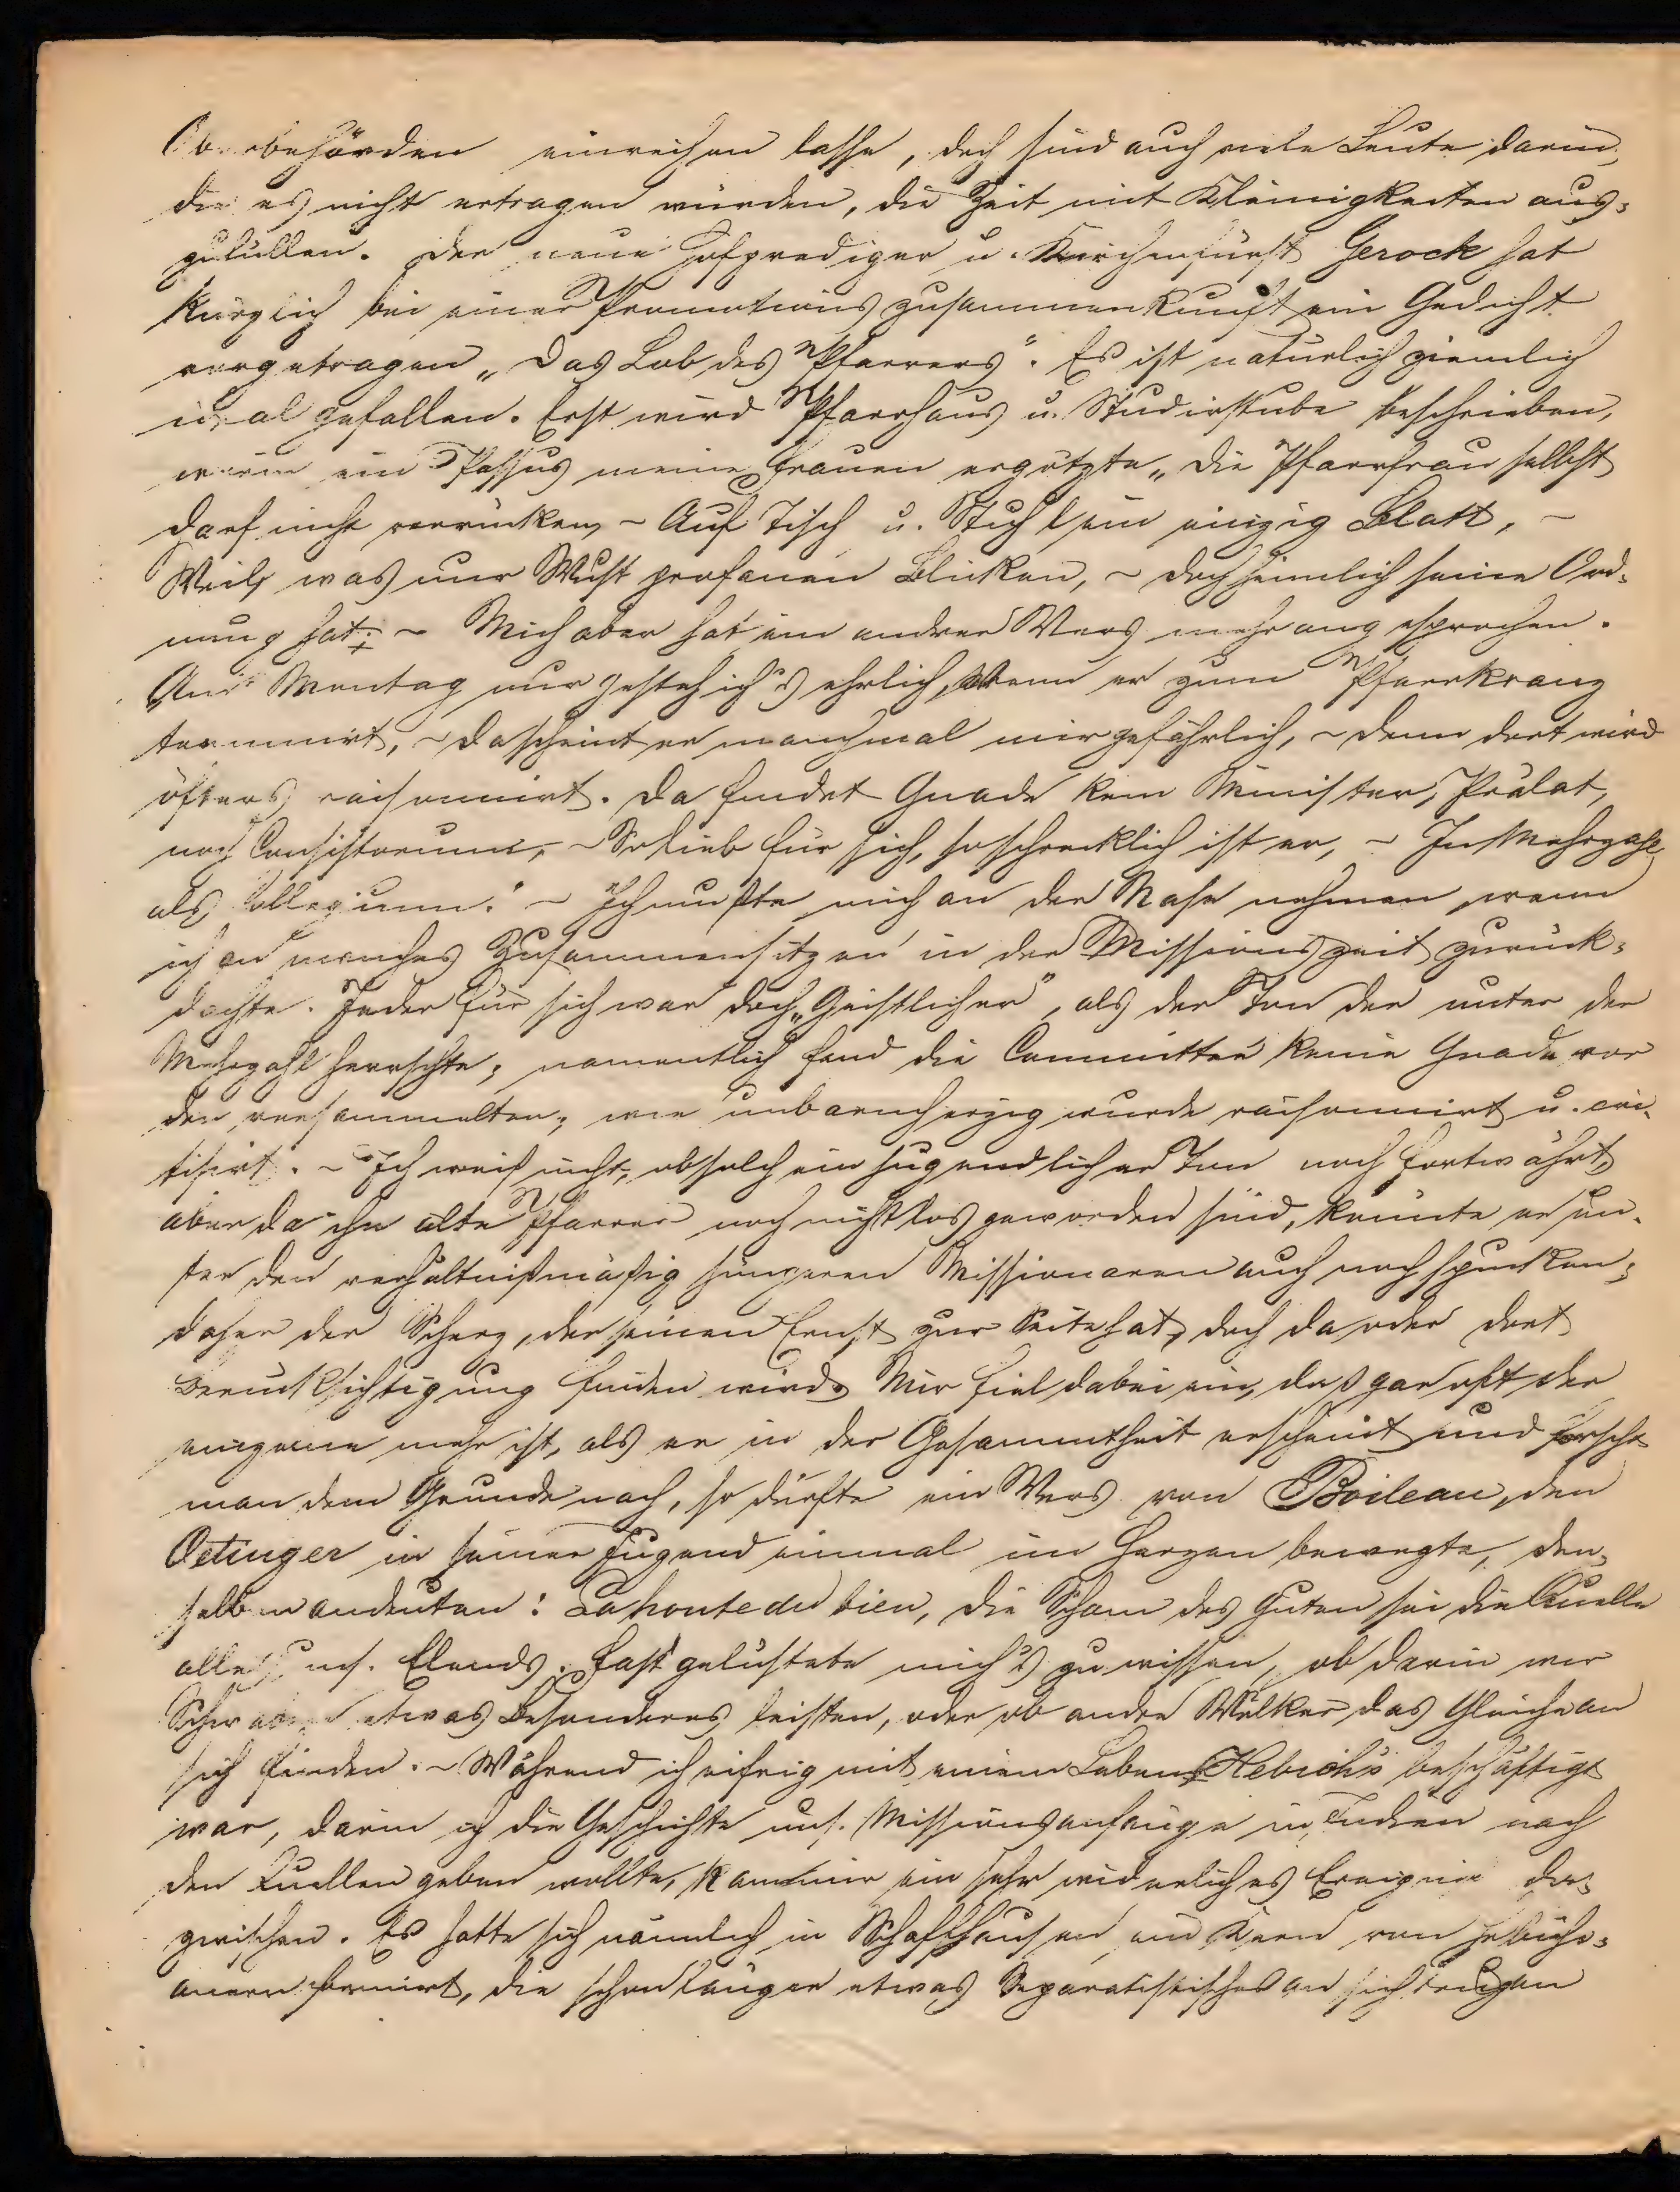 Oberbehörden einreihen lasse, doch sind auch viele Leute darin,
die es nicht ertragen würden, die Zeit mit Kleinigkeiten aus-
zufüllen. Der neue Hofprediger u. Kirchenfürst Gerock hat
kürzlich bei einer Promotionszusammenkunft ein Gedicht
vorgetragen „Das Lob des Pfarrers“. Es ist natürlich ziemlich
ideal gefallen. Erst wird Pfarrhaus u. Studirstube beschrieben,
worin ein Passus meine Frauen ergötzte „Die Pfarrfrau selbst
darf nicht verrücken, – Auf Tisch u. Stuhl ein einzig Blatt, –
Weils was nur Wust profanen Blicken, – doch heimlich seine Ord-
nung hat: – Mich aber hat ein andrer Vers mehr angesprochen.
Am Montag nur gesteh ich's ehrlich, Wenn er zum Pfarrkranz
, – da scheint er manchmal mir gefährlich, – denn dort wird
öfters räsonnirt. Da findet Gnade kein Minister, Prälat,
noch Consistorium, – So lieb für sich, so schrecklich ist er, – In Mehrzahl
als Collegium.“ – Ich mußte mich an der Nase nehmen, wenn
ich an manches Zusammensitzen in der Missionszeit zurück-
dachte. Jeder für sich war doch „Geistlicher“, als der Ton der unter der
Mehrzahl herrschte; namentlich fand die Committee keine Gnade vor
den versammelten; wie unbarmherzig wurde räsonnirt u. cri-
tisirt. – Ich weiß nicht, ob solch ein jugendlicher Ton noch fortwährt,
aber da ihn alte Pfarrer noch nicht los geworden sind, könnte er un-
ter den verhältnißmäßig jüngeren Missionaren auch noch spucken;
daher der Scherz, der seinen Ernst zur Seite hat, doch da oder dort
Berücksichtigung finden wird. Mir fiel dabei ein, daß gar oft der
einzelne mehr ist, als er in der Gesammtheit erscheint und forscht
man dem Grunde nach, so dürfte ein Vers von Boileau, den
Oetinger in seiner Jugend einmal im Herzen bewegte, den-
selben andeuten: La honte du bien, die Scham des Guten sei die Quelle
alles uns. Elends. Fast gelüstete mich's zu wissen, ob darin wir
Schwaben etwas Besonderes leisten, oder ob andre Völker das Gleiche an
sich finden. – Während ich eifrig mit einem Leben Hebich's beschäftigt
war, darin ich die Geschichte uns. Missionsanfänge in Indien nach
den Quellen geben wollte, kam mir ein sehr widerliches Ereigniß da-
zwischen. Es hatte sich nämlich in Schaffhausen ein Kern von Hebichi-
anern formirt, die schon länger etwas Separatistisches an sich trugen